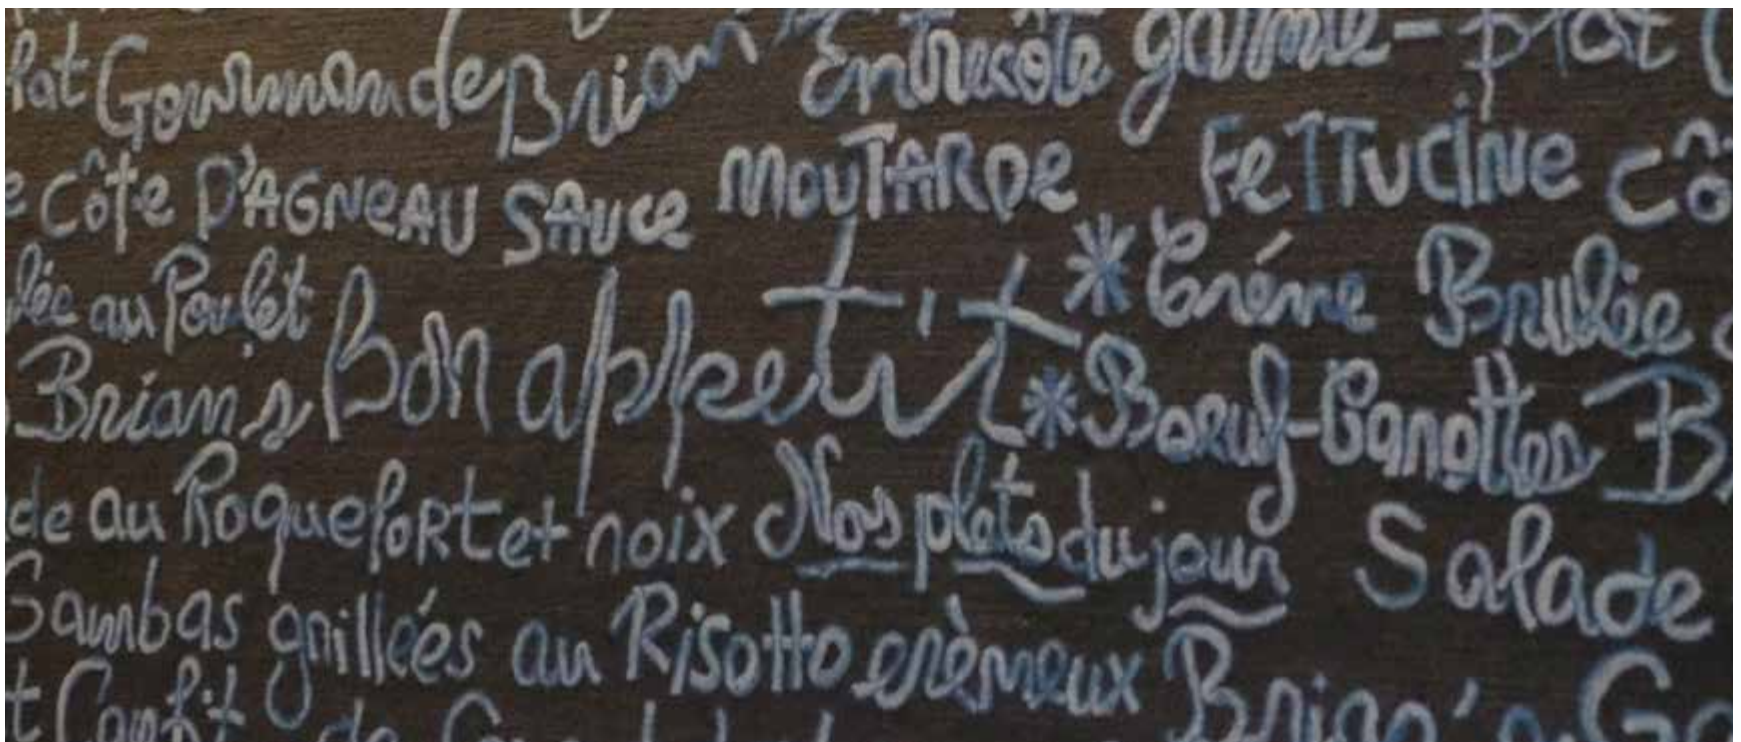 Gourmande Brian's Entrecôte garnie - plat
Côte D'AGNEAU SAUCE MOUTARDE FETTUCINE Cô
lée au Poulet Bon appetit * Créme Brulée
Brian's * Boeuf-Carottes B
de au Roquefort et noix Nos plats du jour Salade
Gambas grillées au Risotto crèmeux Brian's Go
t Confit de